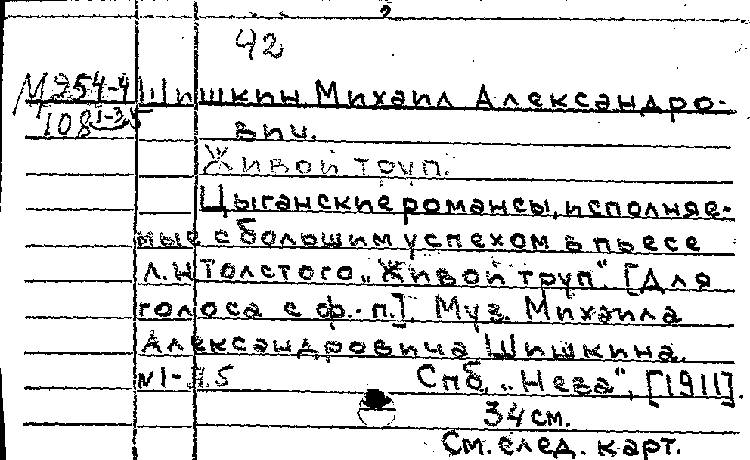 42
М 254-4 Шишкин Михаил Александро-
108 1-3,5 вич.
Живой труп.
Цыганские романсы, исполняе-
мые с большим успехом в пьесе
Л.Н Толстого „Живой труп". [Для
голоса с ф.-п.]. Муз. Михаила
Александровича Шишкина.
Спб, „Нева", [1911].
34 см.
См. след. карт.